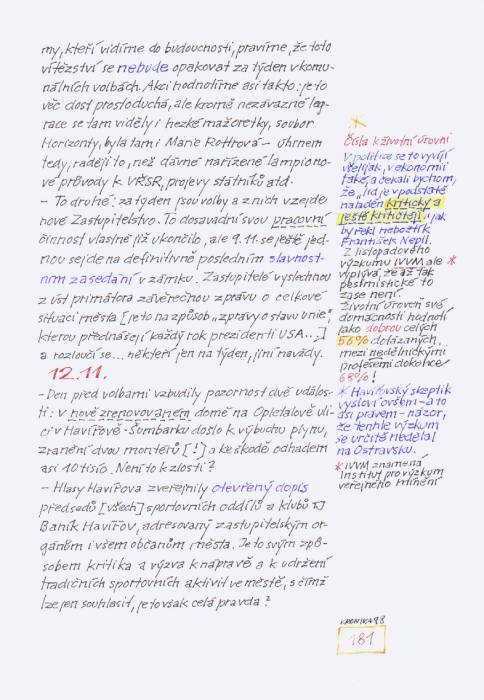 my, kteří vidíme do budoucnosti, pravíme, že toto
vítězství se nebude opakovat za týden v komu-
nálních volbách. Akci hodnotíme asi takto: je to
věc dost prostoduchá, ale kromě nezávazné leg-
race se tam viděly i hezké mažoretky, soubor
Horizonty, byla tam i Marie Rottrová - úhrnem
tedy, raději to, než dávné nařízené lampiono-
vé průvody k VŘSR, projevy státníků atd.
- To druhé: za týden jsou volby a z nich vzejde
nové Zastupitelstvo. To dosavadní svou pracovní
činnost vlastně již ukončilo, ale 9.11. se ještě jed-
nou sejde na definitivně posledním slavnost-
ním zasedání v zámku. Zastupitelé vyslechnou
z úst primátora závěrečnou zprávu o celkové
situaci města [je to na způsob „zprávy o stavu unie",
kterou přednášejí každý rok prezidenti USA...]
a rozloučí se... někteří jen na týden, jiní navždy.
12.11.
- Den před volbami vzbudily pozornost dvě událos-
ti: v nově zrenovovaném domě na Opletalově uli-
ci v Havířově-Šumbarku došlo k výbuchu plynu,
zranění dvou montérů [!] a ke škodě odhadem
asi 10 tisíc. Není to k zlosti?
- Hlasy Havířova zveřejnily otevřený dopis
předsedů [všech] sportovních oddílů a klubů TJ
Baník Havířov, adresovaný zastupitelským or-
gánům i všem občanům města. Je to svým způ-
sobem kritika a výzva k nápravě a k udržení
tradičních sportovních aktivit ve městě, s čímž
lze jen souhlasit, je to však celá pravda?
*
Čísla k životní úrovni
V politice se to vyvíjí
všelijak, v ekonomii
také, a čekali bychom,
že „lid je v podstatě
naladěn kriticky a
ještě kritičtěji", jak
by řekl nebožtík
František Nepil.
Z listopadového
výzkumu IVVM ale *
vyplývá, že až tak
pesimistické to
zase není.
Životní úroveň své
domácnosti hodnotí
jako dobrou celých
56% dotázaných,
mezi nedělnickými
profesemi dokonce
68%!
* Havířovský skeptik
vysloví ovšem - a to
dsi právem - názor,
že tenhle výzkum
se určitě nedělal
na Ostravsku.
* IVVM znamená
Institut pro výzkum
veřejného mínění
KRONIKA 98
181